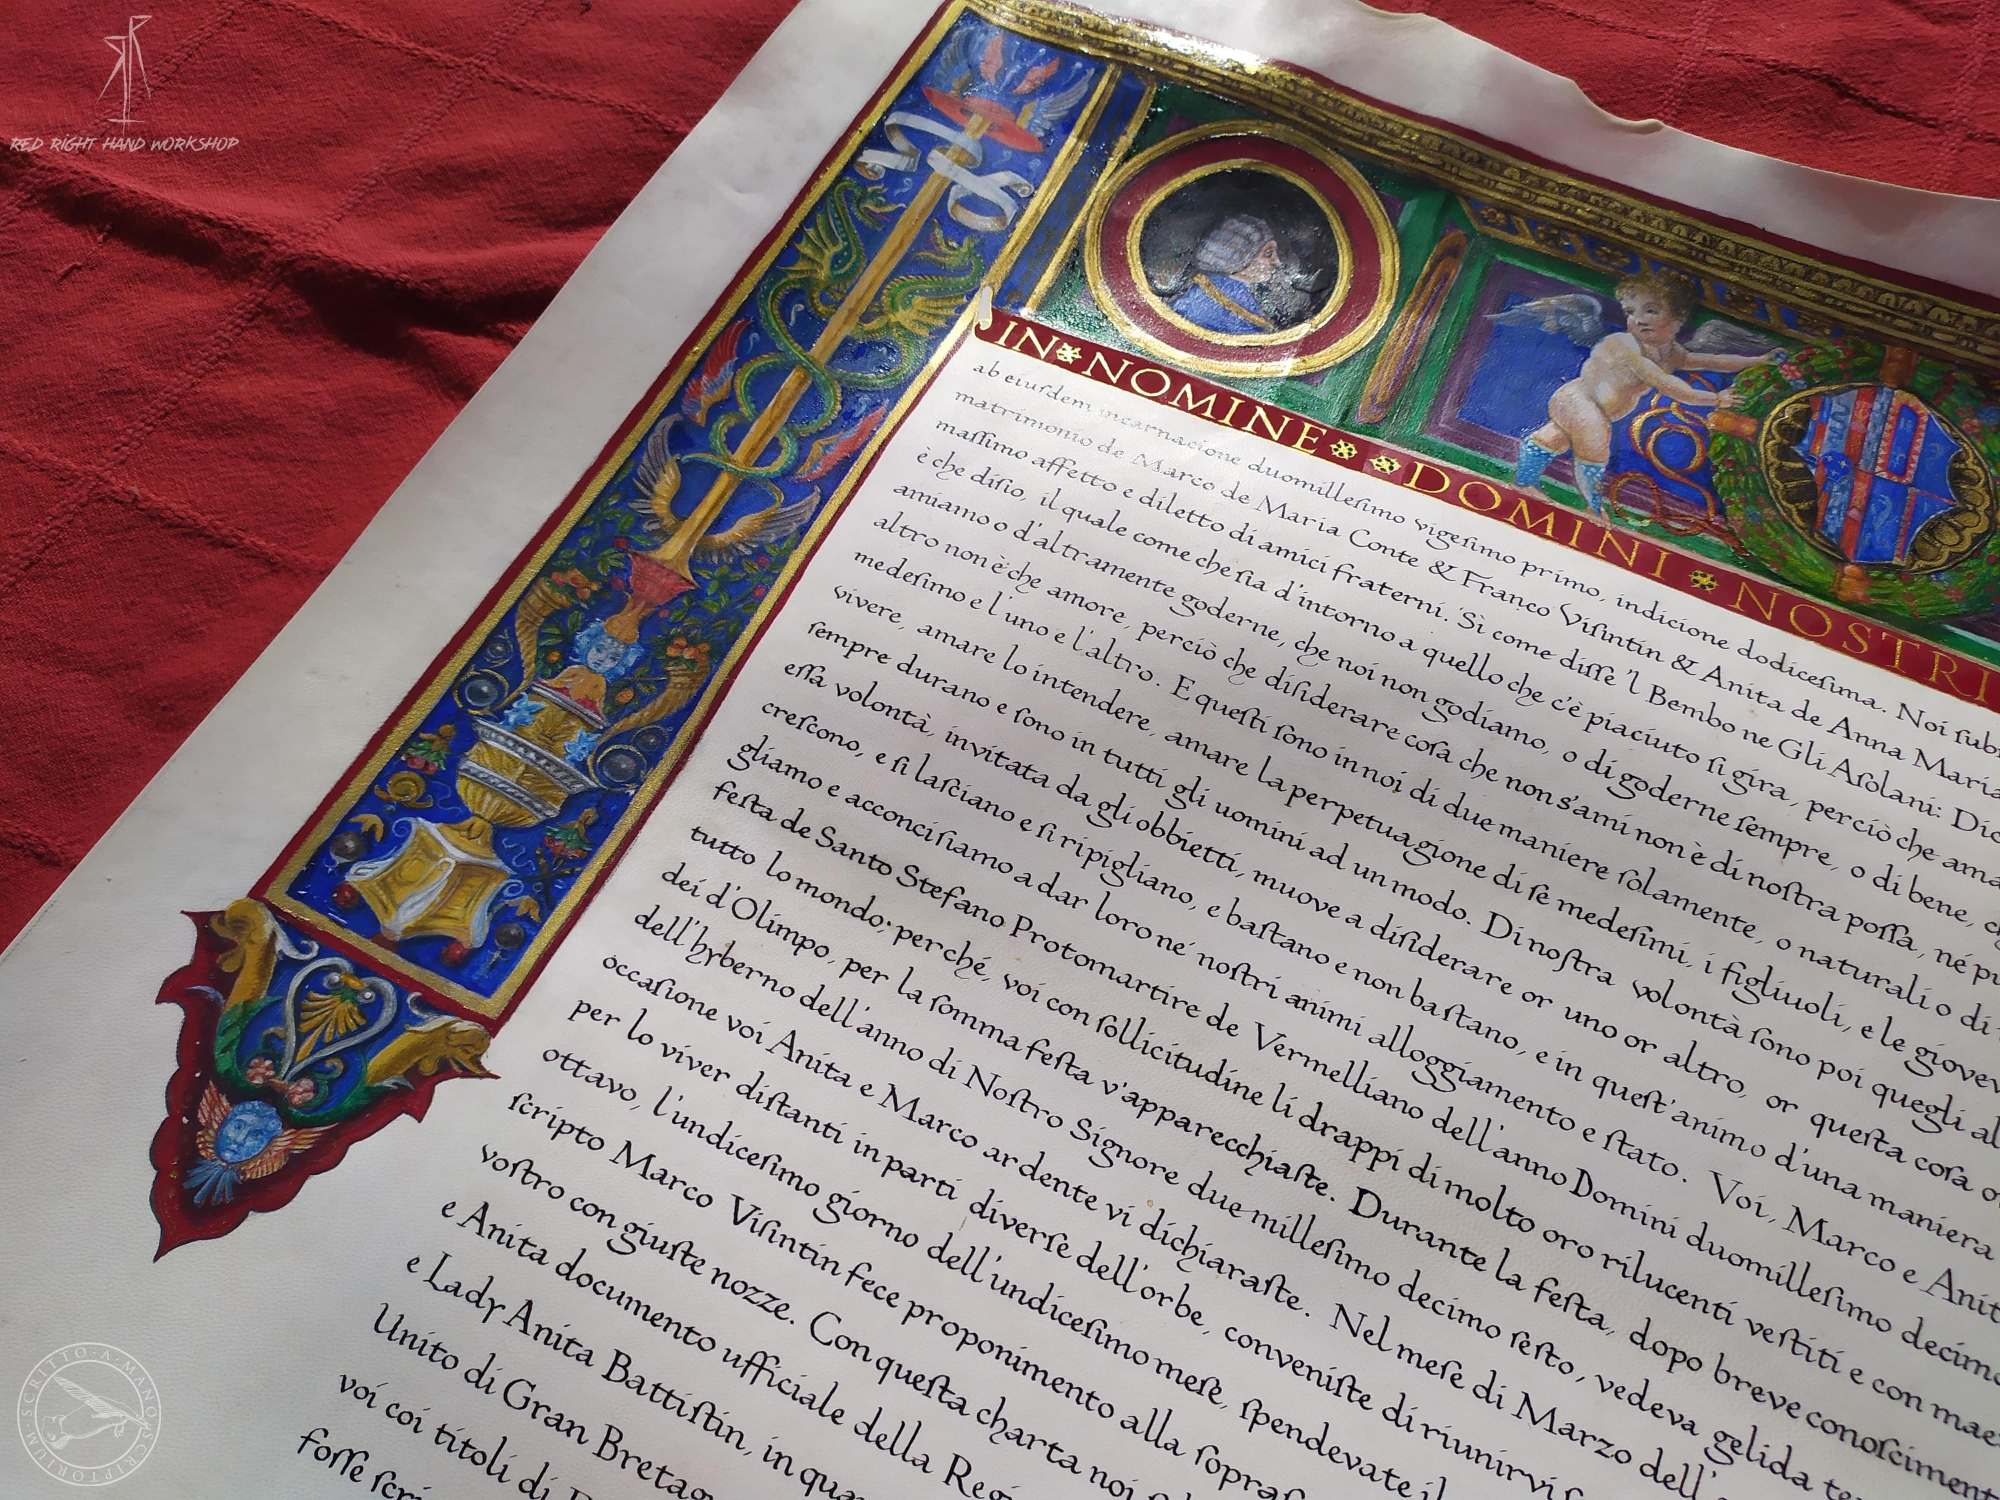 RED RIGHT HAND WORKSHOP
IN NOMINE DOMINI NOSTRI
ab eiuſdem incarnacione duomilleſimo vigeſimo primo, indicione dodiceſima. Noi
matrimonio de Marco de Maria Conte & Franco Viſintin & Anita de Anna Maria
maſſimo affetto e diletto di amici fraterni. Sì come diſſe 'l Bembo ne Gli Aſolani:
è che diſio, il quale come che ſia d'intorno a quello che c'è piaciuto ſi gira, perciò che
amiamo o d'altramente goderne, che noi non godiamo, o di goderne ſempre, o di bene,
altro non è che amore, perciò che diſiderare coſa che non s'ami non è di noſtra poſſa, né
medeſimo e l'uno e l'altro. E queſti ſono in noi di due maniere ſolamente, o naturali o di
vivere, amare lo intendere, amare la perpetuagione di ſe medeſimi, i figliuoli, e le
ſempre durano e ſono in tutti gli uomini ad un modo. Di noſtra volontà ſono poi quegli
eſſa volontà, invitata da gli obbietti, muove a diſiderare or uno or altro, or queſta coſa
creſcono, e ſi laſciano e ſi ripigliano, e baſtano e non baſtano, e in queſt'animo d'una maniera
gliamo e acconciſiamo a dar loro né noſtri animi alloggiamento e ſtato. Voi, Marco e
feſta de Santo Stefano Protomartire de Vermelliano dell'anno Domini duomilleſimo
tutto lo mondo; perché, voi con ſollicitudine li drappi di molto oro rilucenti veſtiti e con
dei d'Olimpo, per la ſomma feſta v'apparecchiaſte. Durante la feſta, dopo breve
dell'hyberno dell'anno di Noſtro Signore due milleſimo decimo ſeſto, vedeva gelida
occaſione voi Anita e Marco ardente vi dichiaraſte. Nel meſe di Marzo
per lo viver diſtanti in parti diverſe dell'orbe, conveniſte di riunirvi
ottavo, l'undiceſimo giorno dell'undiceſimo meſe, ſpendevate
ſcripto Marco Viſintin fece proponimento alla
voſtro con giuſte nozze. Con queſta charta noi
e Anita documento ufficiale della
e Lady Anita Battiſtin, in
Unito di Gran
voi coi titoli di
foſſe
SCRITTO·A·MANO
SCRIPTORIUM